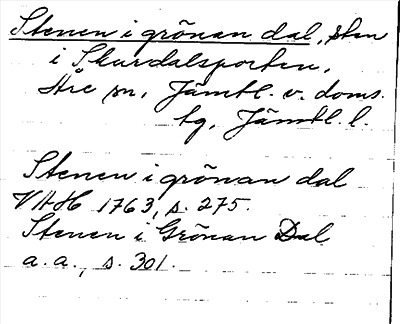 Stenen i grönan dal, sten
i Skurdalsporten,
Åre sn, Jämtl. v. doms.
tg, Jämtl. l.
Stenen i grönan dal
VAH 1763, s. 275.
Stenen i Grönan Dal
a. a., s. 301.